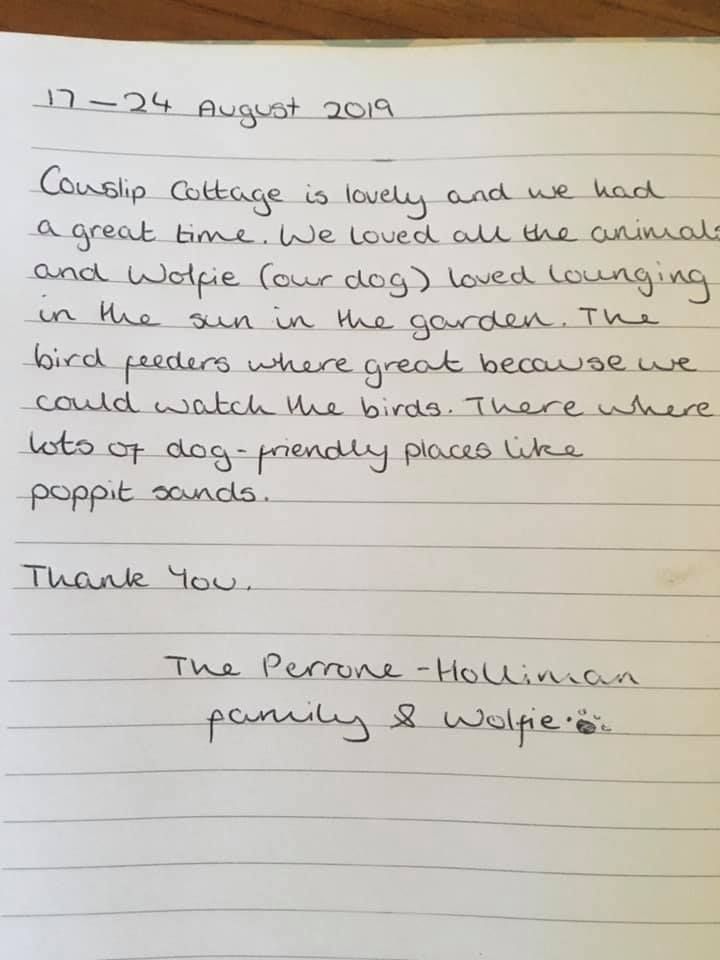 17 – 24 August 2019
Cowslip Cottage is lovely and we had
a great time. We loved all the animals
and Wolfie (our dog) loved lounging
in the sun in the garden. The
bird feeders where great because we
could watch the birds. There where
lots of dog-friendly places like
poppit sands.
Thank You.
The Perrone-Holliman
family & Wolfie.